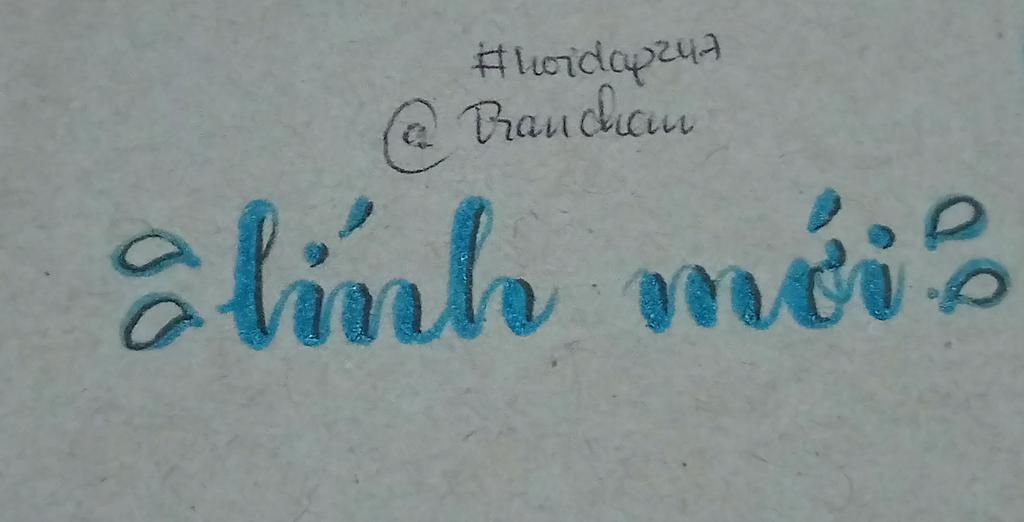 #hoidap247
@Tranchau
lính mới